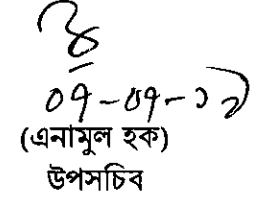 ০৭-০৭-১১
(এনামুল হক)
উপসচিব